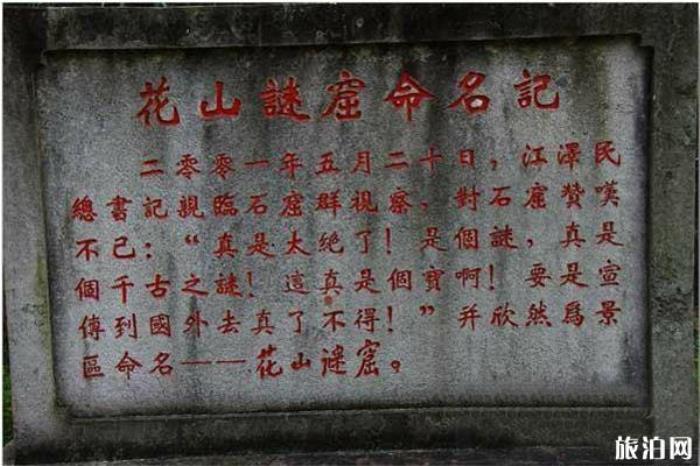 花山謎窟命名記
二零零一年五月二十日，江澤民
總書記親臨石窟群視察，對石窟贊嘆
不已：“真是太绝了！是個謎，真是
個千古之謎！這真是個寶啊！要是宣
傳到國外去真了不得！”并欣然爲景
區命名——花山谜窟。
旅泊网